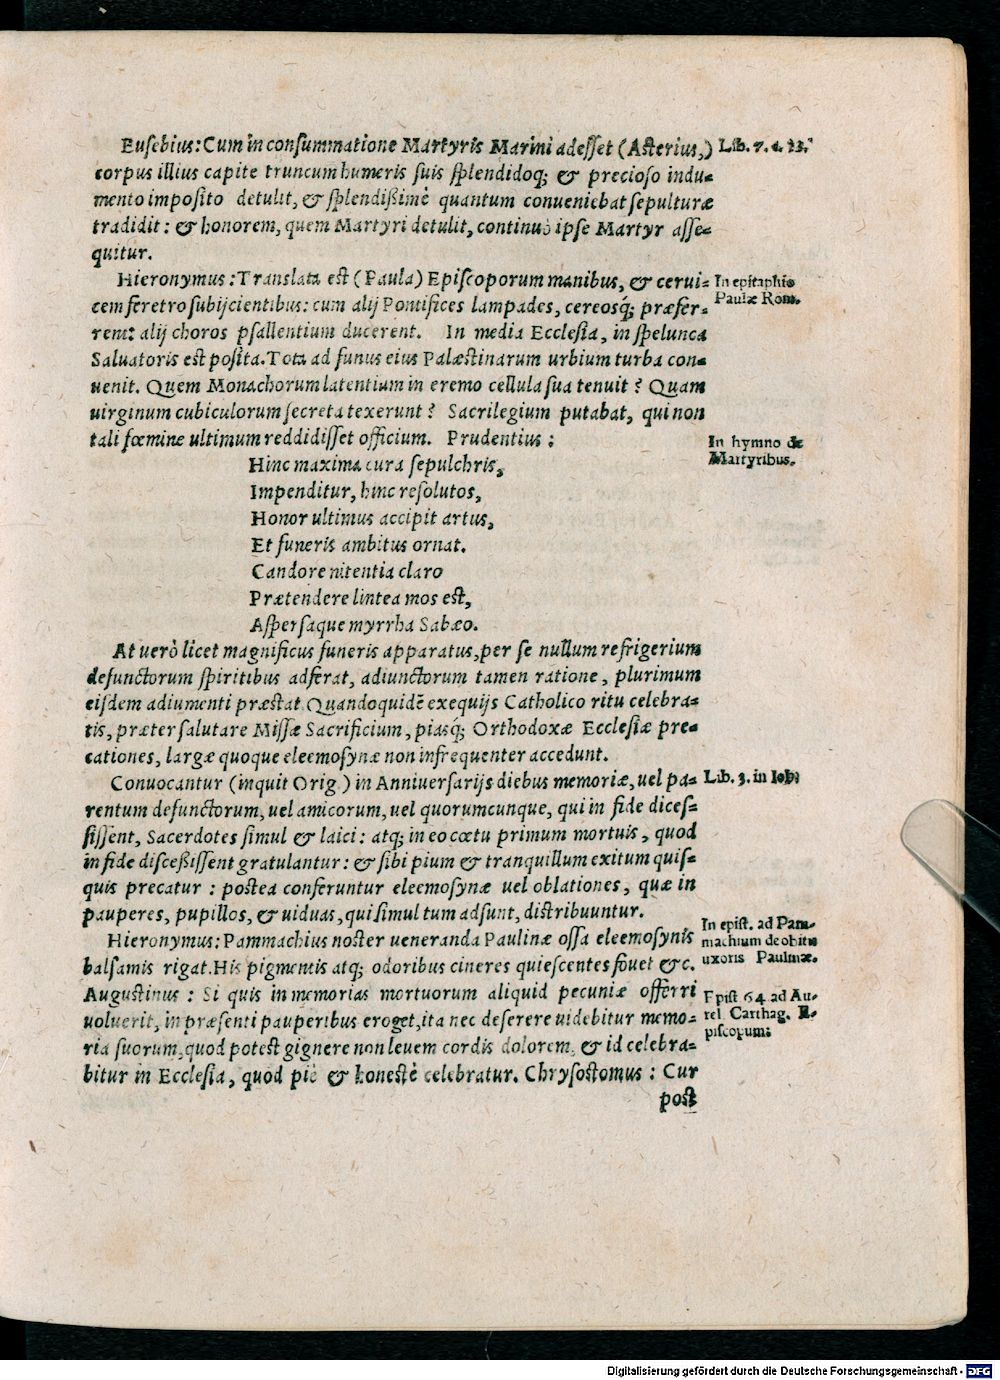 Eusebius: Cum in consummatione Martyris Marini adesset (Asterius,) Lib. 7. c. 13.
corpus illius capite truncum humeris suis splendidoq; & precioso indu-
mento imposito detulit, & splendißimè quantum conueniebat sepulturæ
tradidit: & honorem, quem Martyri detulit, continuò ipse Martyr asse-
quitur.
Hieronymus: Translata est (Paula) Episcoporum manibus, & cerui- In epitaphio
cem feretro subijcientibus: cum alij Pontifices lampades, cereosq́; præfer- Paulæ Rom.
rent: alij choros psallentium ducerent. In media Ecclesia, in spelunca
Saluatoris est posita. Tota ad funus eius Palæstinarum urbium turba con-
uenit. Quem Monachorum latentium in eremo cellula sua tenuit? Quam
uirginum cubiculorum secreta texerunt? Sacrilegium putabat, qui non
tali fœmine ultimum reddidisset officium. Prudentius: In hymno de
Martyribus.
Hinc maxima cura sepulchris,
Impenditur, hinc resolutos,
Honor ultimus accipit artus,
Et funeris ambitus ornat.
Candore nitentia claro
Prætendere lintea mos est,
Aspersaque myrrha Sabæo.
At uerò licet magnificus funeris apparatus, per se nullum refrigerium
defunctorum spiritibus adferat, adiunctorum tamen ratione, plurimum
eisdem adiumenti præstat. Quandoquidē exequijs Catholico ritu celebra-
tis, præter salutare Missæ Sacrificium, piasq́; Orthodoxæ Ecclesiæ pre-
cationes, largæ quoque eleemosynæ non infrequenter accedunt.
Conuocantur (inquit Orig.) in Anniuersarijs diebus memoriæ, uel pa- Lib. 3. in Iob.
rentum defunctorum, uel amicorum, uel quorumcunque, qui in fide disces-
sissent, Sacerdotes simul & laici: atq; in eo cœtu primum mortuis, quod
in fide disceßissent gratulantur: & sibi pium & tranquillum exitum quis-
quis precatur: postea conferuntur eleemosynæ uel oblationes, quæ in
pauperes, pupillos, & uiduas, qui simul tum adsunt, distribuuntur.
Hieronymus: Pammachius noster ueneranda Paulinæ ossa eleemosynis In epist. ad Pam-
balsamis rigat. His pigmentis atq; odoribus cineres quiescentes fouet &c. machium de obitu
uxoris Paulinæ.
Augustinus: Si quis in memorias mortuorum aliquid pecuniæ offerri Epist 64 ad Au-
uoluerit, in præsenti pauperibus eroget, ita nec deserere uidebitur memo- rel. Carthag. E-
ria suorum, quod potest gignere non leuem cordis dolorem, & id celebra- piscopum.
bitur in Ecclesia, quod piè & honestè celebratur. Chrysostomus: Cur
post
Digitalisierung gefördert durch die Deutsche Forschungsgemeinschaft - DFG